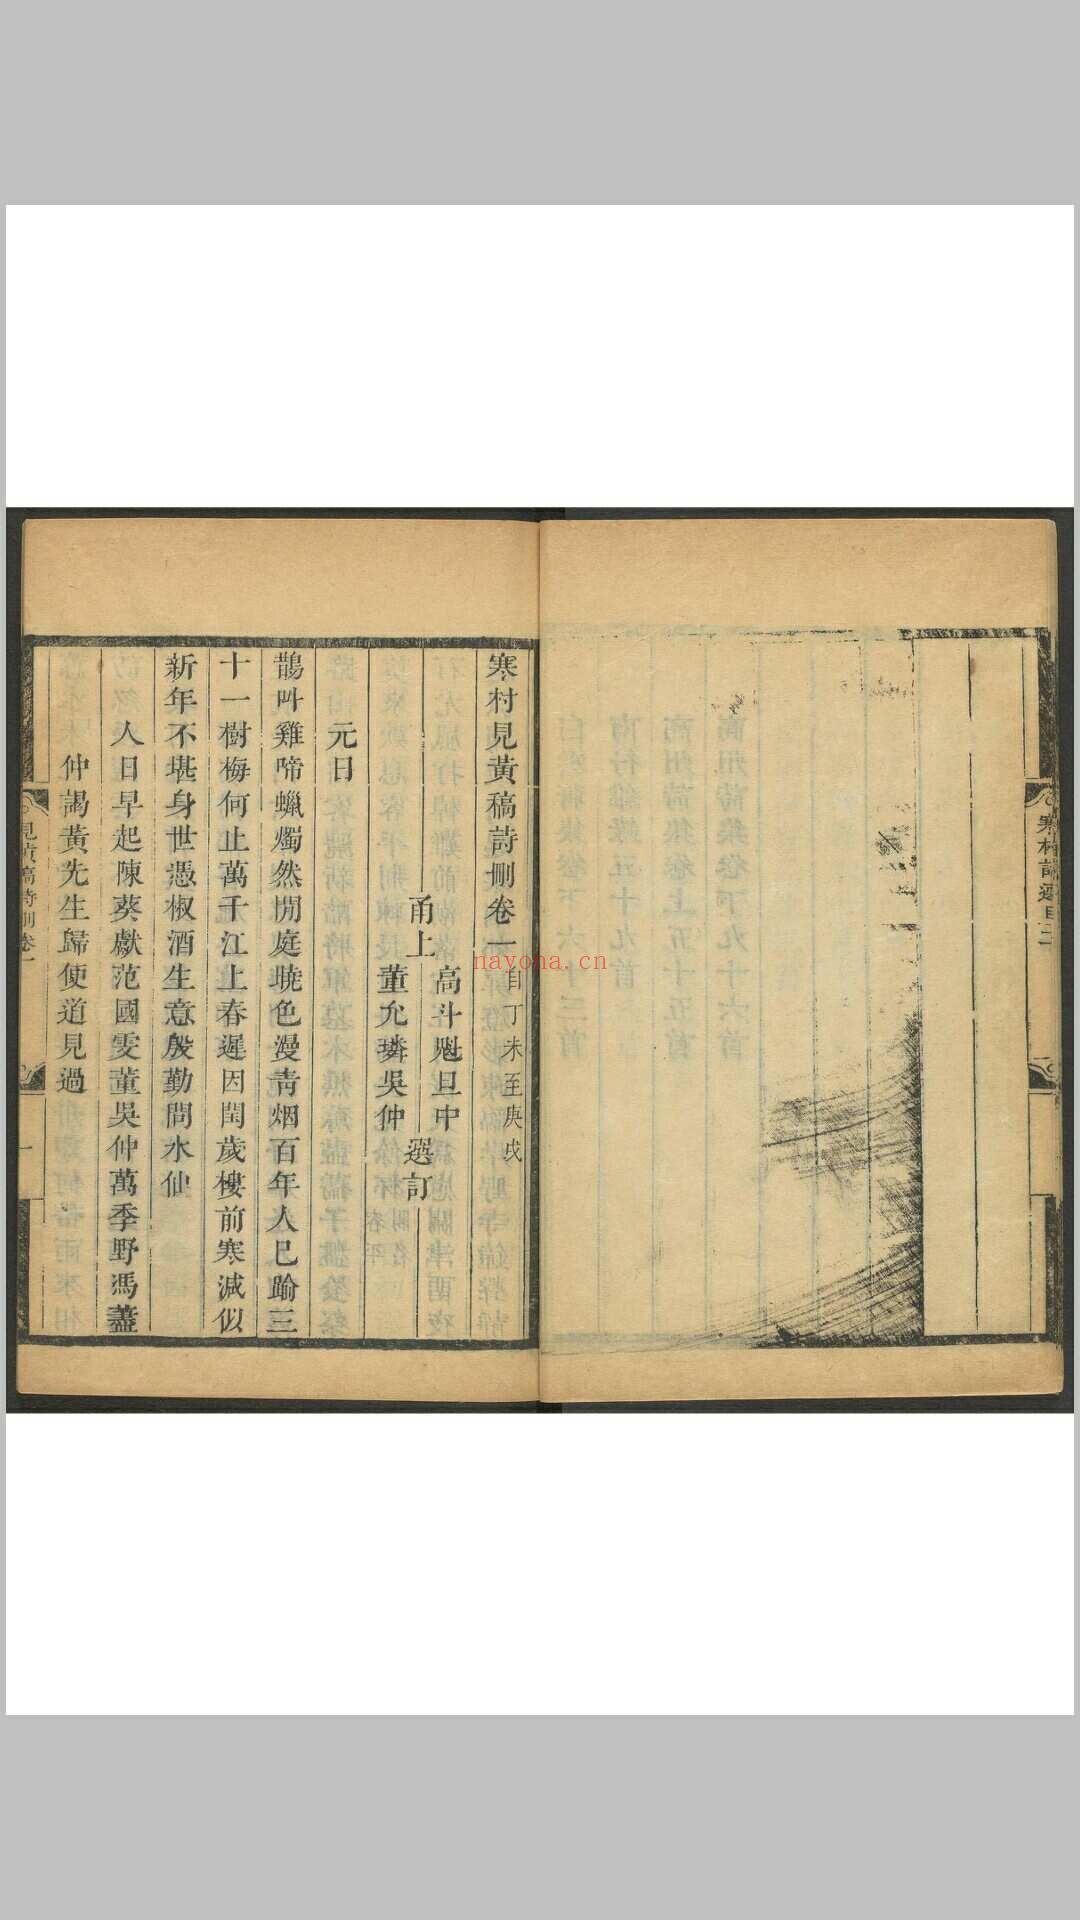 寒村詩選目 三
寒村見黃稿詩刪卷一 自丁未至庚戌
甬上 高斗魁旦中 選訂
董允璘吳仲
元日
鵲呌雞啼蠟燭然閒庭曉色漫青烟百年人已踰三
十一樹梅何止萬千江上春遲因閏歲樓前寒減似
新年不堪身世憑椒酒生意殷勤問水仙
人日早起陳葵獻范國雯董吳仲萬季野馮藎
仲謁黃先生歸便道見過
見黃稿詩刪卷一 一
nayona.cn